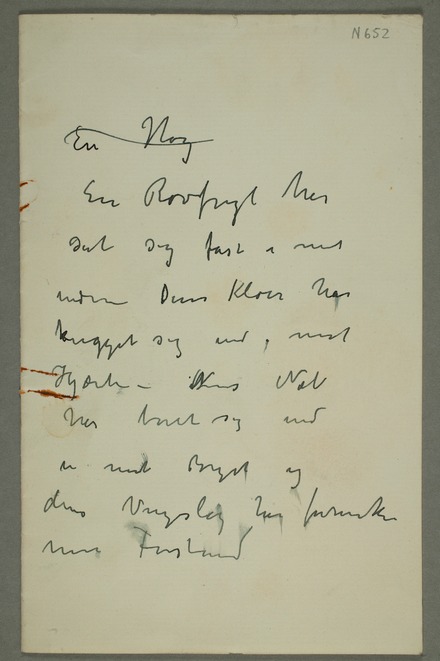 N 652
En Høg
En Rovfugl har
sat sig fast i mit
indre Dens Kloer har
hugget sig ind i mit
Hjærte – Dens Næb
har boret sig ind
i mit Bryst og
dens Vingeslag har formørket
min Forstand